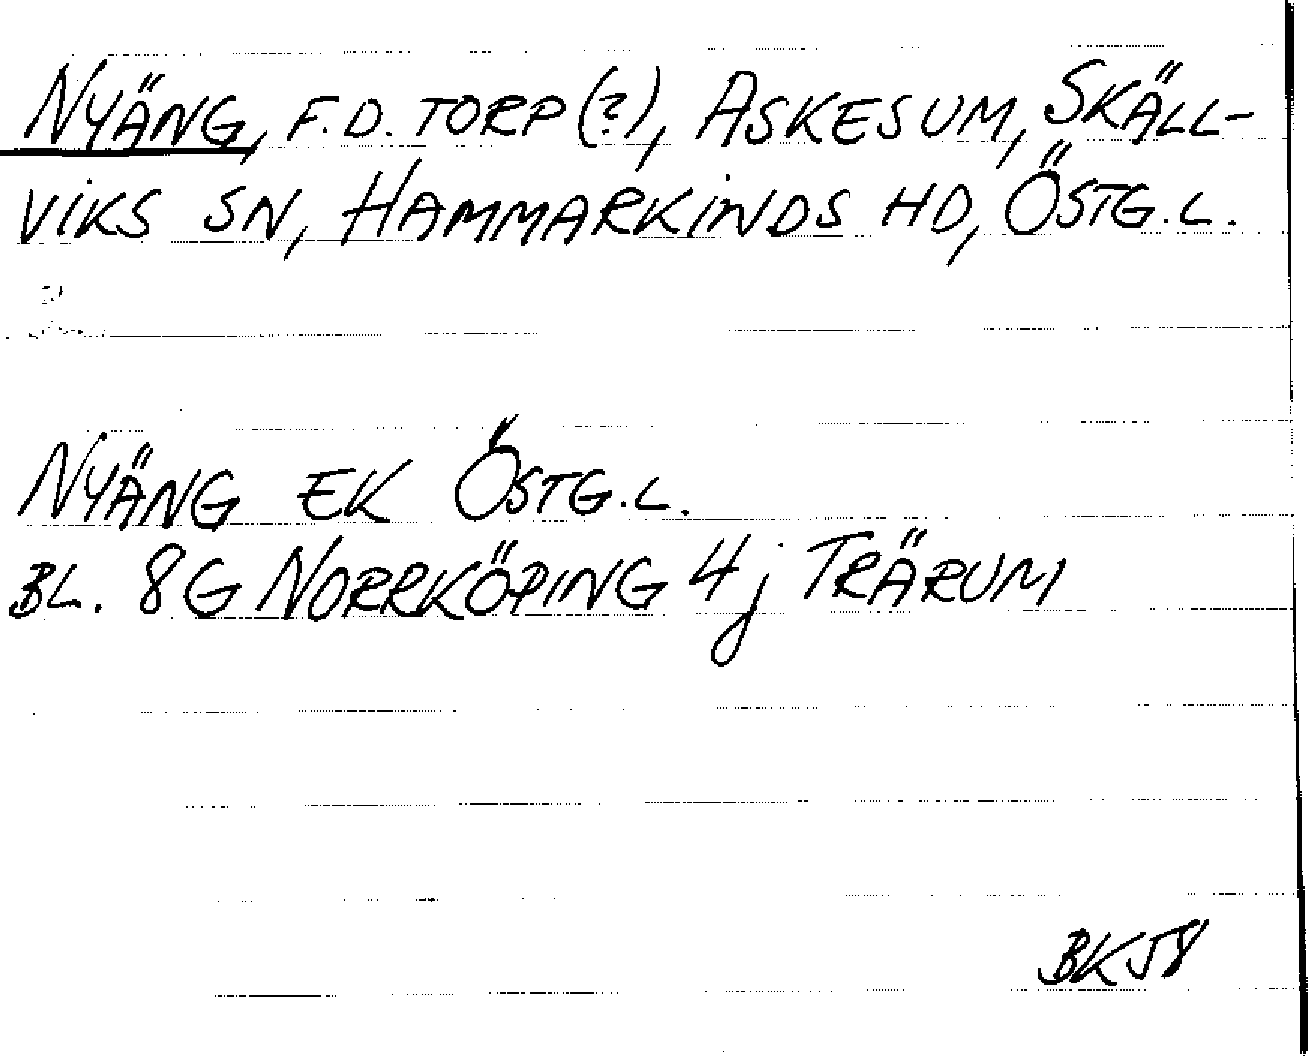 NYÄNG, F.D. TORP (?), ASKESUM, SKÄLL-
VIKS SN, HAMMARKINDS HD, ÖSTG.L.
NYÄNG EK ÖSTG.L.
BL. 8G NORRKÖPING 4j TRÄRUM
BK58